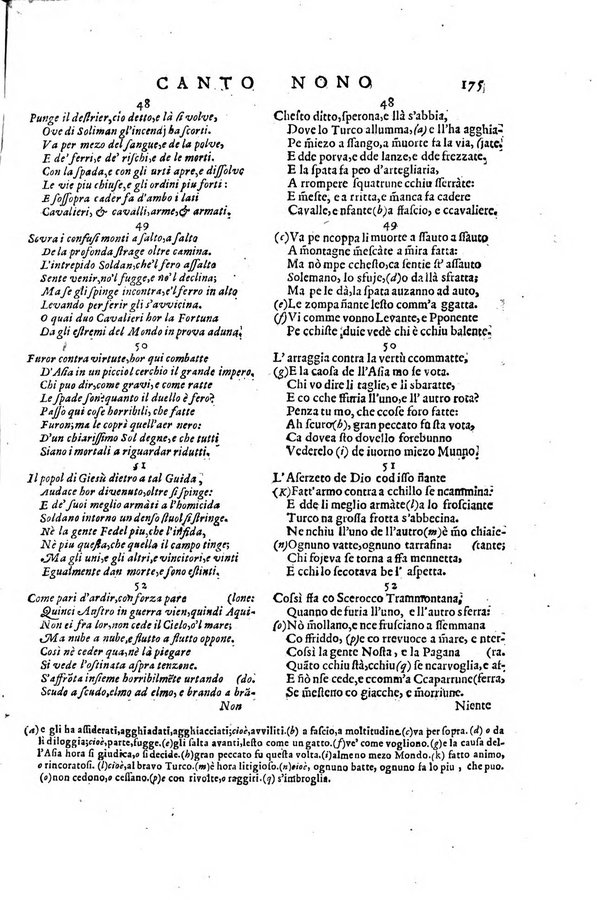 CANTO NONO 175
48
Punge il destrier, ciò detto, e là si volve,
Ove di Soliman gl'incendj ha scorti.
Va per mezo del sangue, e de la polve,
E de' ferri, e de' rischi, e de le morti.
Con la spada, e con gli urti apre, e dissolve
Le vie piu chiuse, e gli ordini piu forti:
E sossopra cader fa d'ambo i lati
Cavalieri, & cavalli, arme, & armati.
49
Sovra i confusi monti a salto, a salto
De la profonda strage oltre camina.
L'intrepido Soldan, che'l fero assalto
Sente venir, no'l fugge, e no'l declina;
Ma se gli spinge incontra, e'l ferro in alto
Levando per ferir gli s'avvicina.
O quai duo Cavalieri hor la Fortuna
Da gli estremi del Mondo in prova aduna.
50
Furor contra virtute, hor qui combatte
D'Asia in un picciol cerchio il grande impero.
Chi puo dir, come gravi, e come ratte
Le spade son e quanto il duello è fero?
Passo qui cose horribili, che fatte
Furon; ma le coprì quell'aer nero:
D'un chiarissimo Sol degne, e che tutti
Siano i mortali a riguardar ridutti.
51
Il popol di Giesù dietro a tal Guida,
Audace hor divenuto, oltre si spinge:
E de' suoi meglio armàti a l'homicida
Soldano intorno un denso stuol si stringe.
Nè la gente Fedel piu, che l'infida,
Nè piu questa, che quella il campo tinge;
Ma gli uni, e gli altri, e vincitori, e vinti
Egualmente dan morte, e sono estinti.
52
Come pari d'ardir, con forza pare (lone:
Quinci Austro in guerra vien, quindi Aqui-
Non ei fra lor, non cede il Cielo, o'l mare;
Ma nube a nube, e flutto a flutto oppone.
Così nè ceder qua, nè là piegare
Si vede l'ostinata aspra tenzone.
S'affrōta insieme horribilmēte urtando (do.
Scudo a scudo, elmo ad elmo, e brando a brā-
Non
48
Chesto ditto, sperona, e llà s'abbia,
Dove lo Turco allumma, (a) e ll'ha agghia-
Pe miezo a ssango, a muorte fa la via, (jate.
E dde porva, e dde lanze, e dde frezzate.
E la spata fa peo d'artegliaria,
A rrompere squatrune cchiu serràte:
E meste, e a rritta, e manca fa cadere
Cavalle, e nfante (b) a ffascio, e ccavaliere.
49
(c) Va pe ncoppa li muorte a ssauto a ssauto
A montagne mescàte a mira fatta:
Ma nò mpe cchesto, ca sentie st' assauto
Solemano, lo sfuje, (d) o dalla sfratta;
Ma pe le dà, la spata auzanno ad auto,
(e) Le zompa ñante lesto comm'a ggatta.
(f) Vi comme vonno Levante, e Pponente
Pe cchiste duie vedè chi è cchiu balente.
50
L'arraggia contra la vertù ccommatte,
(g) E la caosa de ll'Asia mo se vota.
Chi vo dire li taglie, e li sbaratte,
E ccomme se sferra ll'uno, e ll'autro rota?
Penza tu mo, che ccose foro fatte:
Ah scuro (h), gran peccato fu sta vota,
Ca dovea sto dovello forebunno
Vederelo (i) de iuorno miezo Munno.
51
L'Aserzeto de Dio cod isso ñante
(K) Fatt'armo contra a cchillo se ncammina:
E dde li meglio armàte (l) a lo frosciante
Turco na grossa frotta s'abbecina.
Ne nchiu ll'uno de ll'autro (m) è mo chiaie-
(n) Ognuno vatte, ognuno tarrafina: (tante;
Chi fojeva se torna a ffa mennetta;
E cchi lo secotava be l' aspetta.
52
Cossì ffa co Scerocco Trammontana,
Quanno de furia ll'uno, e ll'autro sferra:
(o) Nò mollano, e nce frusciano a ssemmana
Co ffriddo, (p) e co rrevuoce a mare, e nter-
Cossì la gente Nosta, e la Pagana (ra,
Quāto cchiu stà, cchiu (q) se ncarvoglia, e af-
E nò nse cede, e ccomm'a Ccaparrune (ferra,
Se mesterro co giacche, e morriune.
Niente
(a) e gli ha assiderati, agghiadati, agghiacciati; cioè, avviliti. (b) a fascio, a moltitudine. (c) va per sopra. (d) o da
li diloggia; cioè, parte, fugge. (e) gli salta avanti, lesto come un gatto. (f) ve' come vogliono. (g) e la causa del-
l'Asia hora si giudica, o si decide. (h) gran peccato fu questa volta. (i) almeno mezo Mondo. (k) fatto animo,
o rincoratosi. (l) cioè, al bravo Turco. (m) è hora litigioso. (n) cioè, ognuno batte, ognuno fa lo piu, che puo.
(o) non cedono, o cessano. (p) e con rivolte, o raggiri. (q) s'imbroglia.